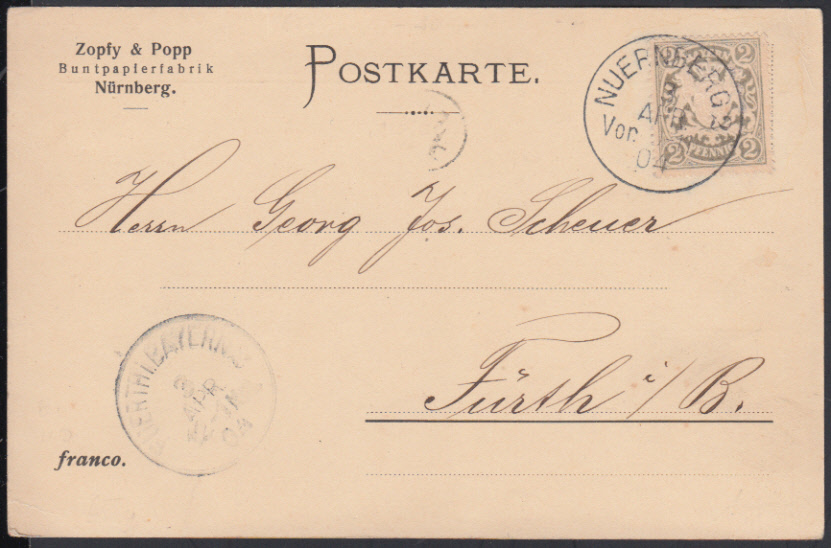 Zopfy & Popp
Buntpapierfabrik
Nürnberg.
POSTKARTE.
NUERNBERG
APR
Vor. 12
04
2 2
2 PFENNIG 2
Herrn Georg Jos. Scheuer
Fürth i/B.
FUERTH I. BAYERN
APR
04
franco.